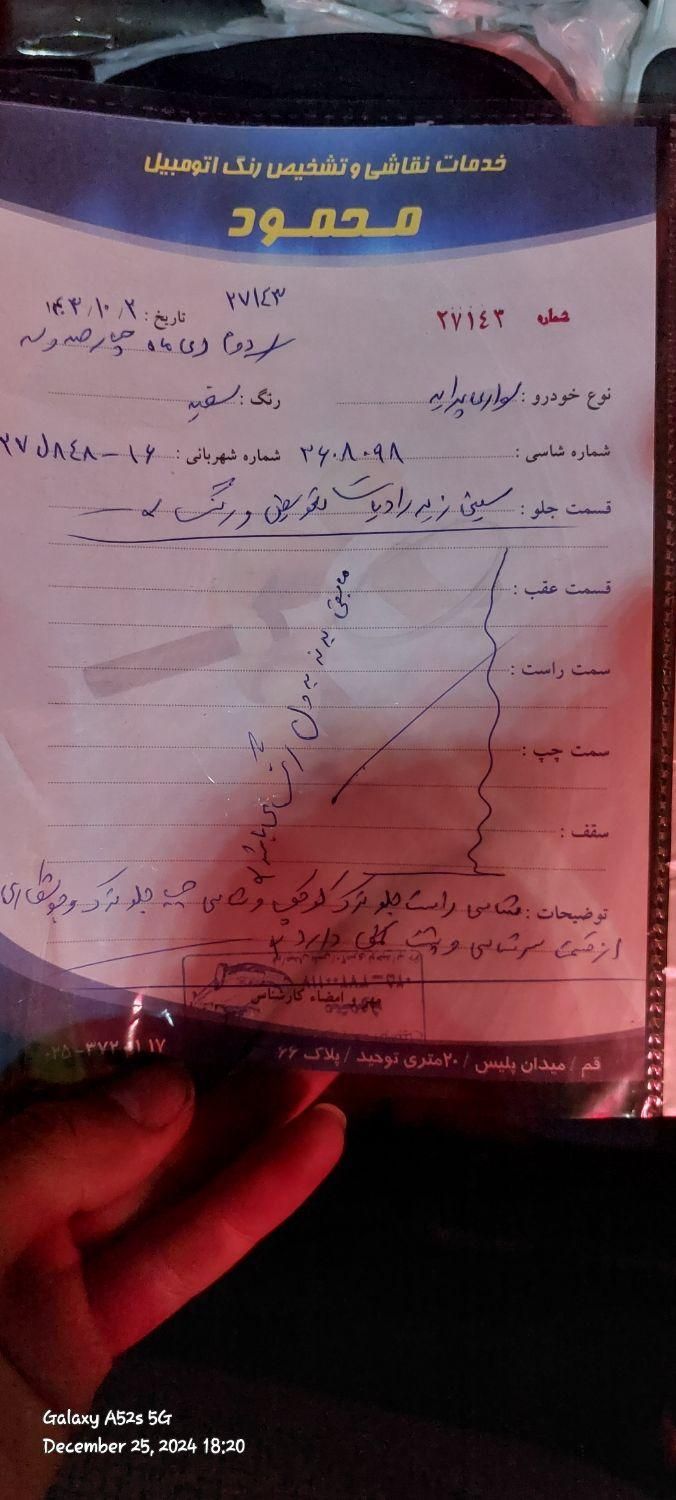 خدمات نقاشی و تشخیص رنگ اتومبیل
محمود
شماره ۲۷۱٤۳
۲۷۱٤۳
تاریخ : ۱۴۰۳/۱۰/۲
دوم دی ماه چهارصد و سه
نوع خودرو : سواری پراید
رنگ : سفید
شماره شاسی : ۳۶۰۸۰۹۸
شماره شهربانی : ۱۶ – ۸٤۸ل۳۷
قسمت جلو : سینی زیر رادیات تعویض و رنگ
قسمت عقب :
سمت راست :
سمت چپ :
سقف :
مابقی بدنه بدون رنگ می باشد
توضیحات : شاسی راست جلو ترک کوچک و شاسی چپ جلو ترک و جوشکاری
از قسمت سرشاسی و پشت کمکی دارد
مهر و امضاء کارشناس
قم / میدان پلیس / ۲۰متری توحید / پلاک ۶۶
۰۲۵-۳۷۲۰۰۱۱۷
Galaxy A52s 5G
December 25, 2024 18:20